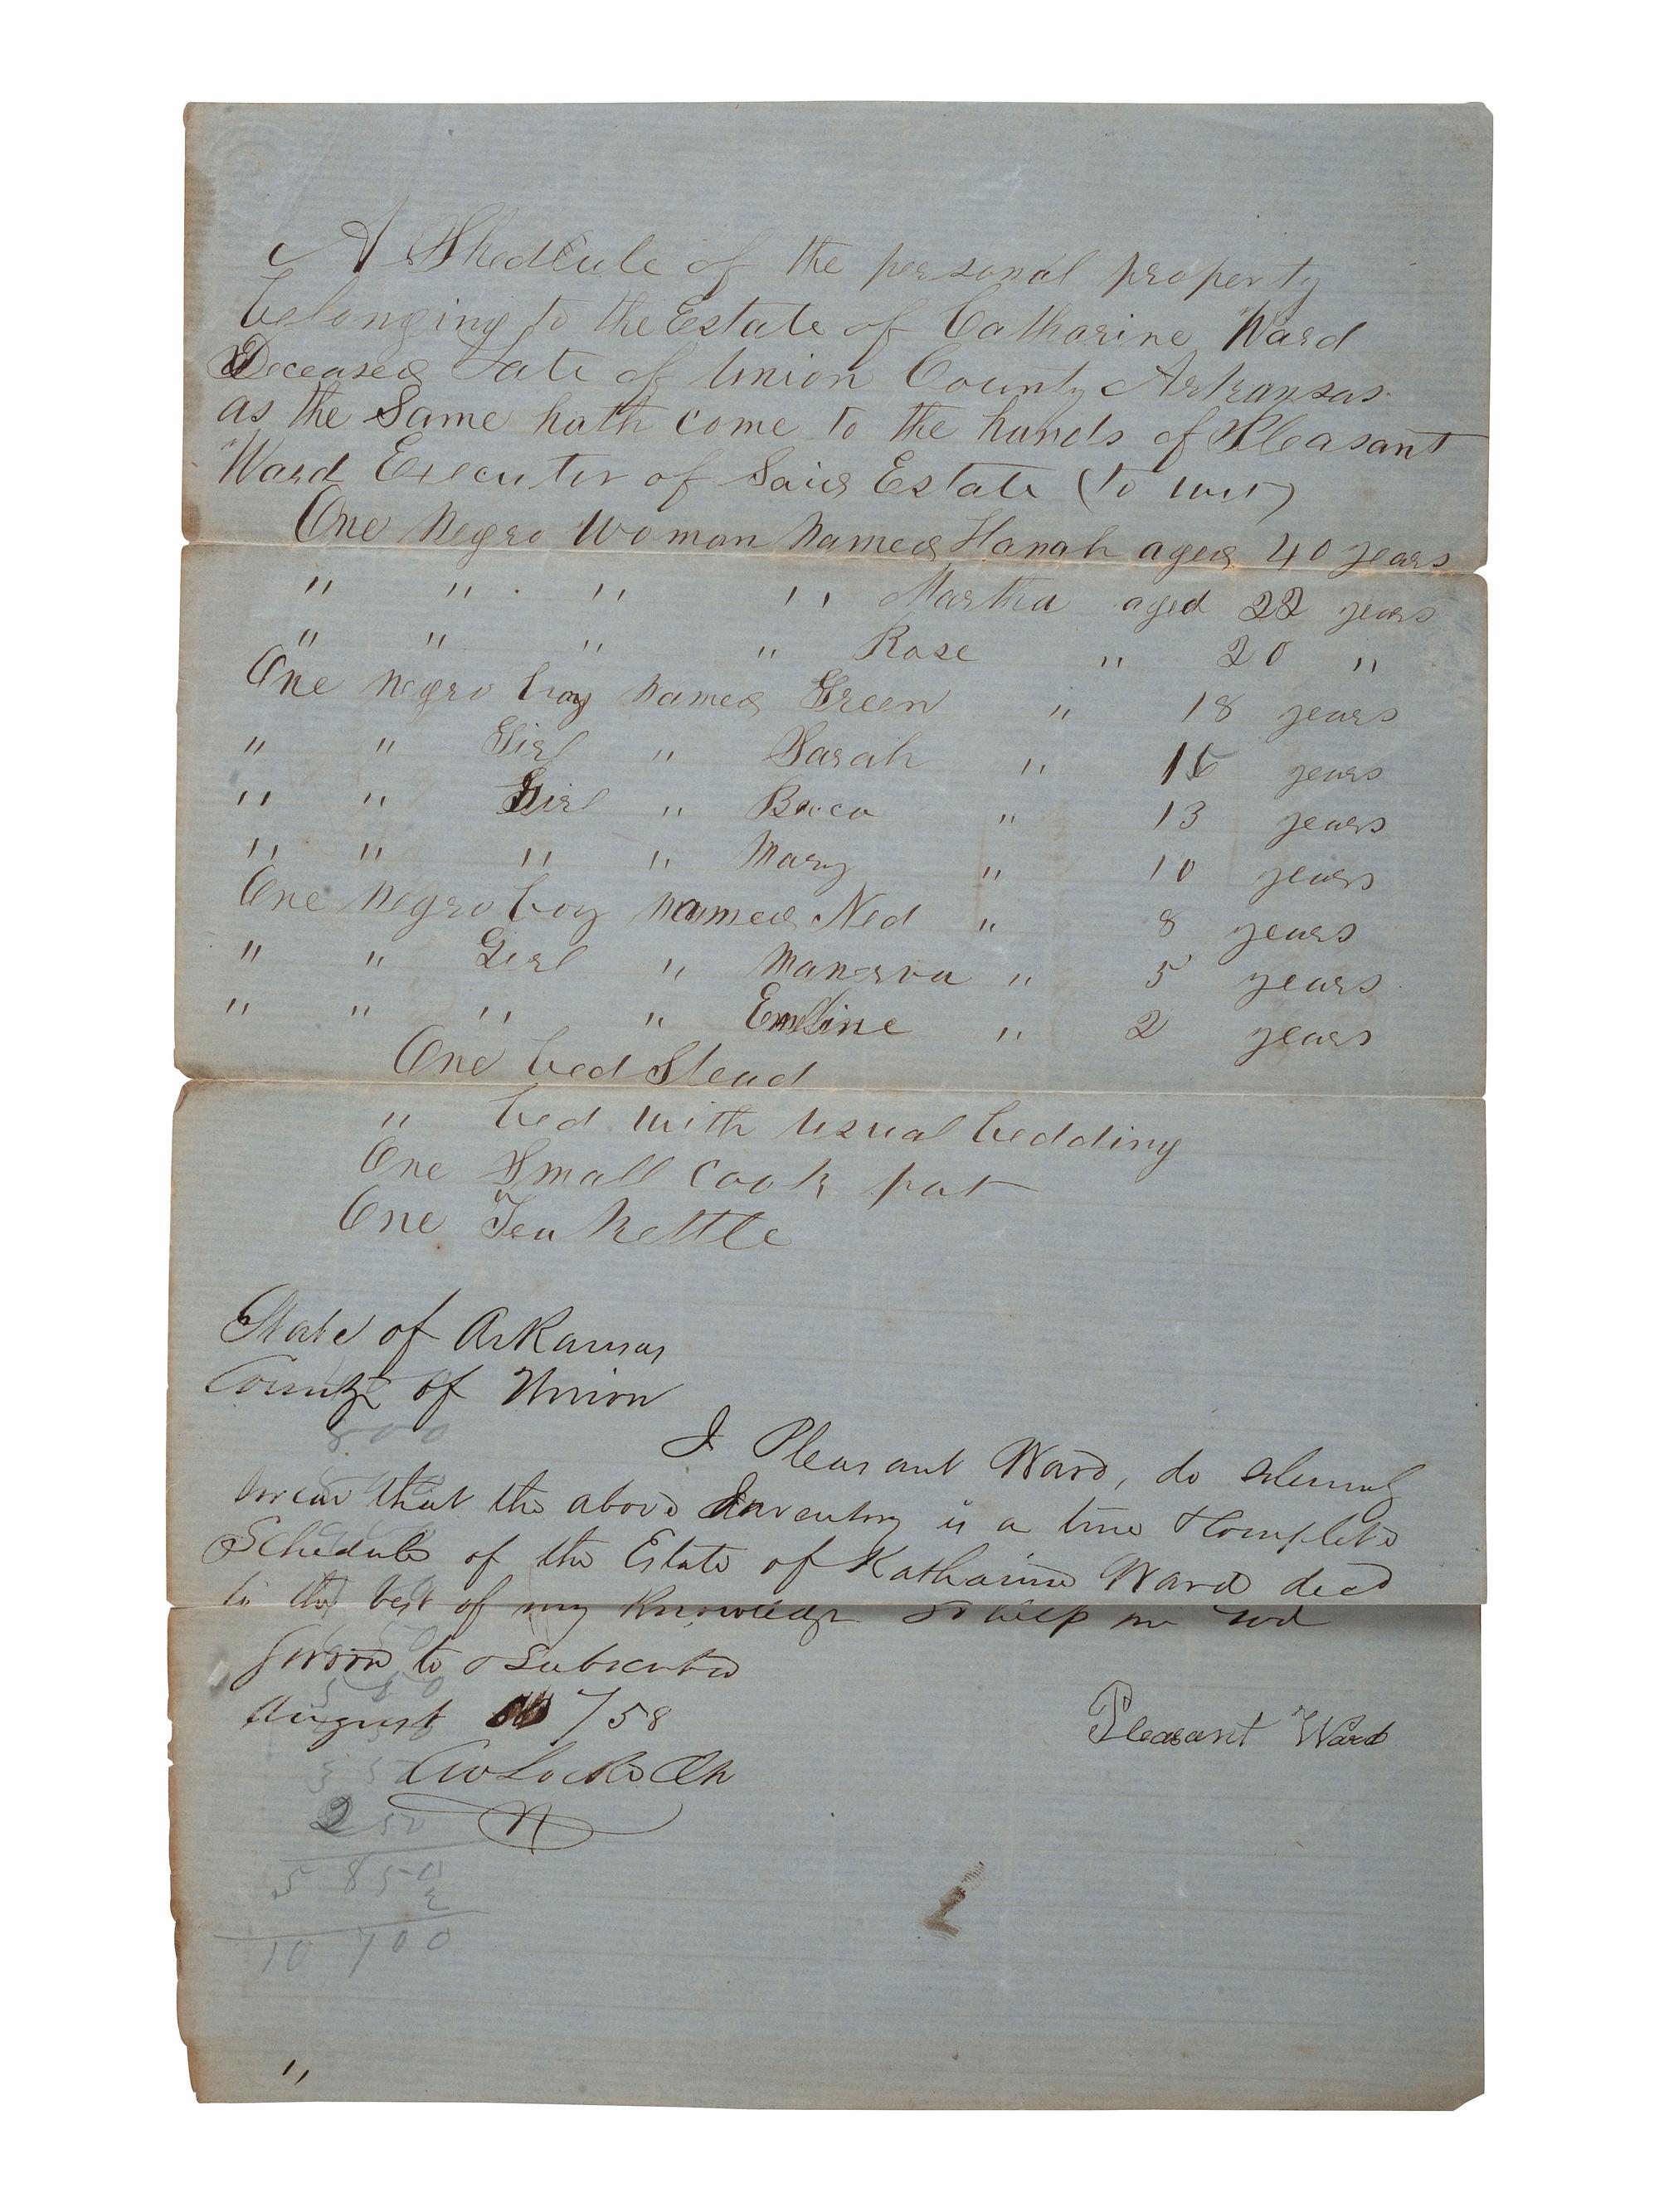 A Shedeule of the personal property
belonging to the Estate of Catharine Ward
Deceased Late of Union County Arkansas
as the Same hath come to the hands of Pleasant
Ward Executor of Said Estate (to wit)
One Negro Woman Named Hanah aged 40 years
" " " " Martha aged 22 years
" " " " Rose " 20 "
One negro boy named Green " 18 years
" " Girl " Sarah " 15 years
" " Girl " Beca " 13 years
" " " " Mary " 10 years
One Negro boy named Ned " 8 years
" " Girl " Manerva " 5 years
" " " " Emline " 2 years
One bed Stead
" bed with usual bedding
One Small Cook pot
One Tea Kettle
State of Arkansas
County of Union
800
I Pleasant Ward, do solemnly
swear that the above Inventory is a true & complete
Schedule of the Estate of Katharine Ward decd
to the best of my Knowledge So help me God
Sworn to & Subscribed
August /58
Pleasant Ward
Clk
250
5850
2
10 700
"